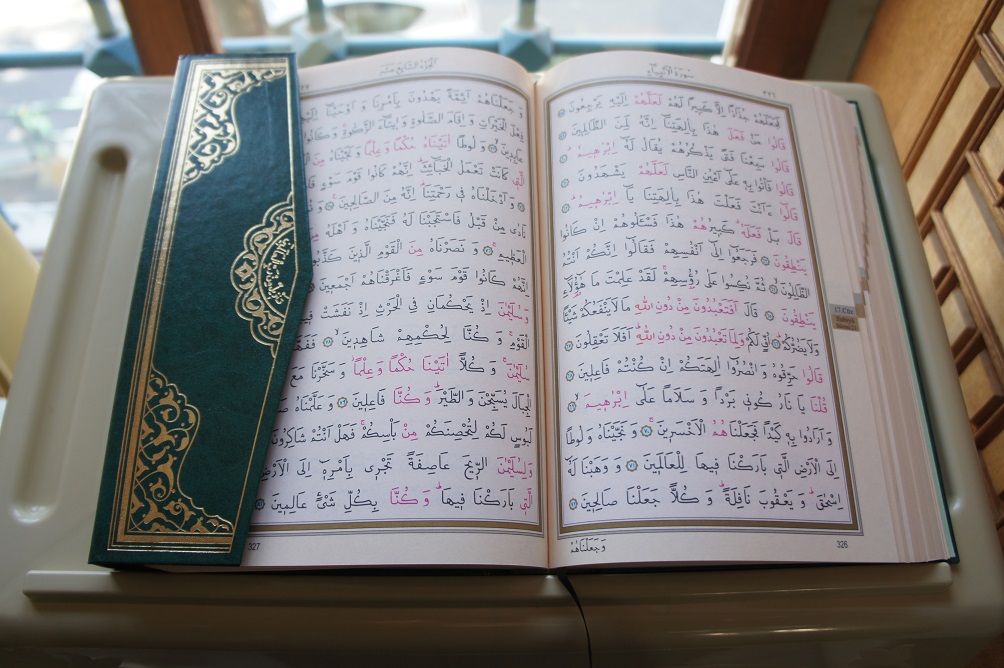 سُورَةُ الْاَنْبِيَاءِ ٣٢٦
فَجَعَلَهُمْ جُذَاذًا اِلَّا كَبِيرًا لَهُمْ لَعَلَّهُمْ اِلَيْهِ يَرْجِعُونَ ٥٨
قَالُوا مَنْ فَعَلَ هٰذَا بِاٰلِهَتِنَا اِنَّهُ لَمِنَ الظَّالِمِينَ ٥٩
قَالُوا سَمِعْنَا فَتًى يَذْكُرُهُمْ يُقَالُ لَهُ اِبْرٰهِيمُ ٦٠
قَالُوا فَأْتُوا بِهِ عَلٰٓى اَعْيُنِ النَّاسِ لَعَلَّهُمْ يَشْهَدُونَ ٦١
قَالُٓوا ءَاَنْتَ فَعَلْتَ هٰذَا بِاٰلِهَتِنَا يَٓا اِبْرٰهِيمُ ٦٢
قَالَ بَلْ فَعَلَهُ كَبِيرُهُمْ هٰذَا فَسْـَٔلُوهُمْ اِنْ كَانُوا
يَنْطِقُونَ ٦٣ فَرَجَعُٓوا اِلٰٓى اَنْفُسِهِمْ فَقَالُٓوا اِنَّكُمْ اَنْتُمُ
الظَّالِمُونَ ٦٤ ثُمَّ نُكِسُوا عَلٰى رُؤُ۫سِهِمْ لَقَدْ عَلِمْتَ مَا هٰٓؤُ۬لَٓاءِ
يَنْطِقُونَ ٦٥ قَالَ اَفَتَعْبُدُونَ مِنْ دُونِ اللّٰهِ مَا لَا يَنْفَعُكُمْ شَيْـًٔا
وَلَا يَضُرُّكُمْ ٦٦ اُفٍّ لَكُمْ وَلِمَا تَعْبُدُونَ مِنْ دُونِ اللّٰهِ اَفَلَا تَعْقِلُونَ ٦٧
قَالُوا حَرِّقُوهُ وَانْصُرُٓوا اٰلِهَتَكُمْ اِنْ كُنْتُمْ فَاعِلِينَ ٦٨
قُلْنَا يَا نَارُ كُونِي بَرْدًا وَسَلَامًا عَلٰٓى اِبْرٰهِيمَ ٦٩
وَاَرَادُوا بِهِ كَيْدًا فَجَعَلْنَاهُمُ الْاَخْسَرِينَ ٧٠ وَنَجَّيْنَاهُ وَلُوطًا
اِلَى الْاَرْضِ الَّتِي بَارَكْنَا فِيهَا لِلْعَالَمِينَ ٧١ وَوَهَبْنَا لَهُ
اِسْحٰقَ وَيَعْقُوبَ نَافِلَةً وَكُلًّا جَعَلْنَا صَالِحِينَ ٧٢
وَجَعَلْنَاهُمْ
326
اَلْجُزْءُ السَّابِعَ عَشَرَ
وَجَعَلْنَاهُمْ اَئِمَّةً يَهْدُونَ بِاَمْرِنَا وَاَوْحَيْنَٓا
فِعْلَ الْخَيْرَاتِ وَاِقَامَ الصَّلٰوةِ وَاِيتَٓاءَ الزَّكٰوةِ وَكَانُوا
عَابِدِينَ ٧٣ وَلُوطًا اٰتَيْنَاهُ حُكْمًا وَعِلْمًا وَنَجَّيْنَاهُ مِنَ
الَّتِي كَانَتْ تَعْمَلُ الْخَبَٓائِثَ اِنَّهُمْ كَانُوا قَوْمَ سَوْءٍ
وَاَدْخَلْنَاهُ فِي رَحْمَتِنَا اِنَّهُ مِنَ الصَّالِحِينَ ٧٥
نَادٰى مِنْ قَبْلُ فَاسْتَجَبْنَا لَهُ فَنَجَّيْنَاهُ وَاَهْلَهُ
الْعَظِيمِ ٧٦ وَنَصَرْنَاهُ مِنَ الْقَوْمِ الَّذِينَ
اِنَّهُمْ كَانُوا قَوْمَ سَوْءٍ فَاَغْرَقْنَاهُمْ اَجْمَعِينَ
وَسُلَيْمٰنَ اِذْ يَحْكُمَانِ فِي الْحَرْثِ اِذْ نَفَشَتْ
الْقَوْمِ وَكُنَّا لِحُكْمِهِمْ شَاهِدِينَ ٧٨
سُلَيْمٰنَ وَكُلًّا اٰتَيْنَا حُكْمًا وَعِلْمًا وَسَخَّرْنَا مَعَ
الْجِبَالَ يُسَبِّحْنَ وَالطَّيْرَ وَكُنَّا فَاعِلِينَ ٧٩ وَعَلَّمْنَاهُ
لَبُوسٍ لَكُمْ لِتُحْصِنَكُمْ مِنْ بَأْسِكُمْ فَهَلْ اَنْتُمْ شَاكِرُونَ
وَلِسُلَيْمٰنَ الرِّيحَ عَاصِفَةً تَجْرِي بِاَمْرِهِ اِلَى الْاَرْضِ
الَّتِي بَارَكْنَا فِيهَا وَكُنَّا بِكُلِّ شَيْءٍ عَالِمِينَ ٨١
327